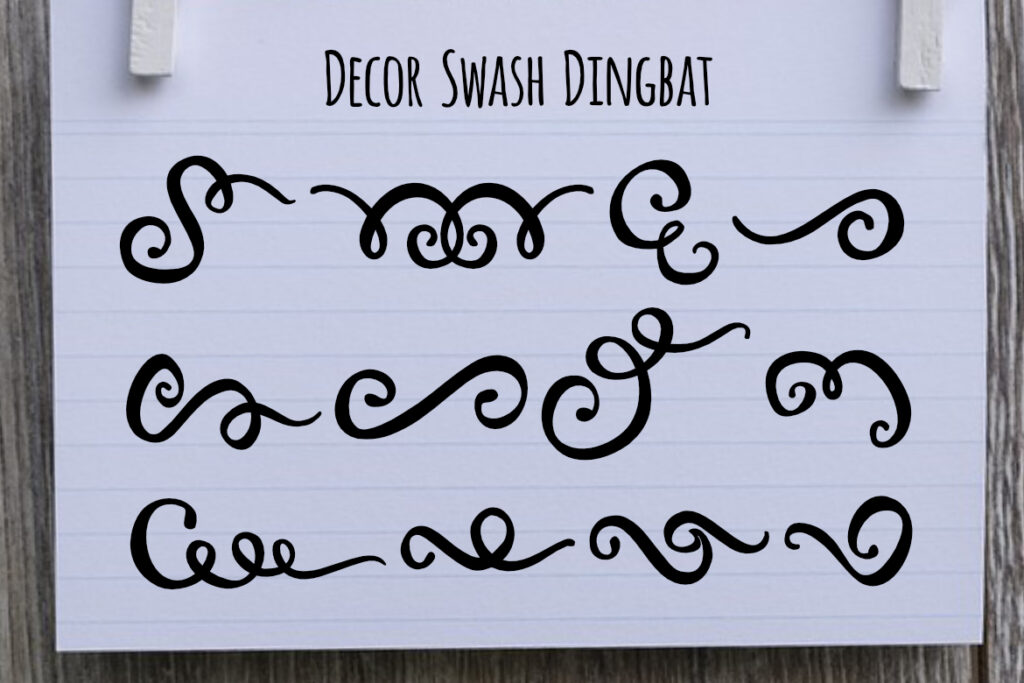 Decor Swash Dingbat